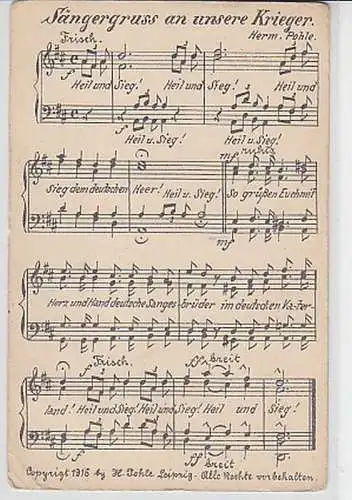 Sängergruss an unsere Krieger.
Frisch.
Herm. Pohle.
f
Heil und Sieg! Heil und Sieg! Heil und
f
Heil u. Sieg! Heil u. Sieg!
mf ruhig
Sieg dem deutschen Heer! Heil u. Sieg! So grüßen Euch mit
mf
Herz und Hand deutsche Sanges-brüder im deutschen Va-ter-
Frisch. ff breit
f
land! Heil und Sieg! Heil und Sieg! Heil und Sieg!
f ff breit
Copyrigt 1916 by H. Pohle Leipzig. Alle Rechte vorbehalten.